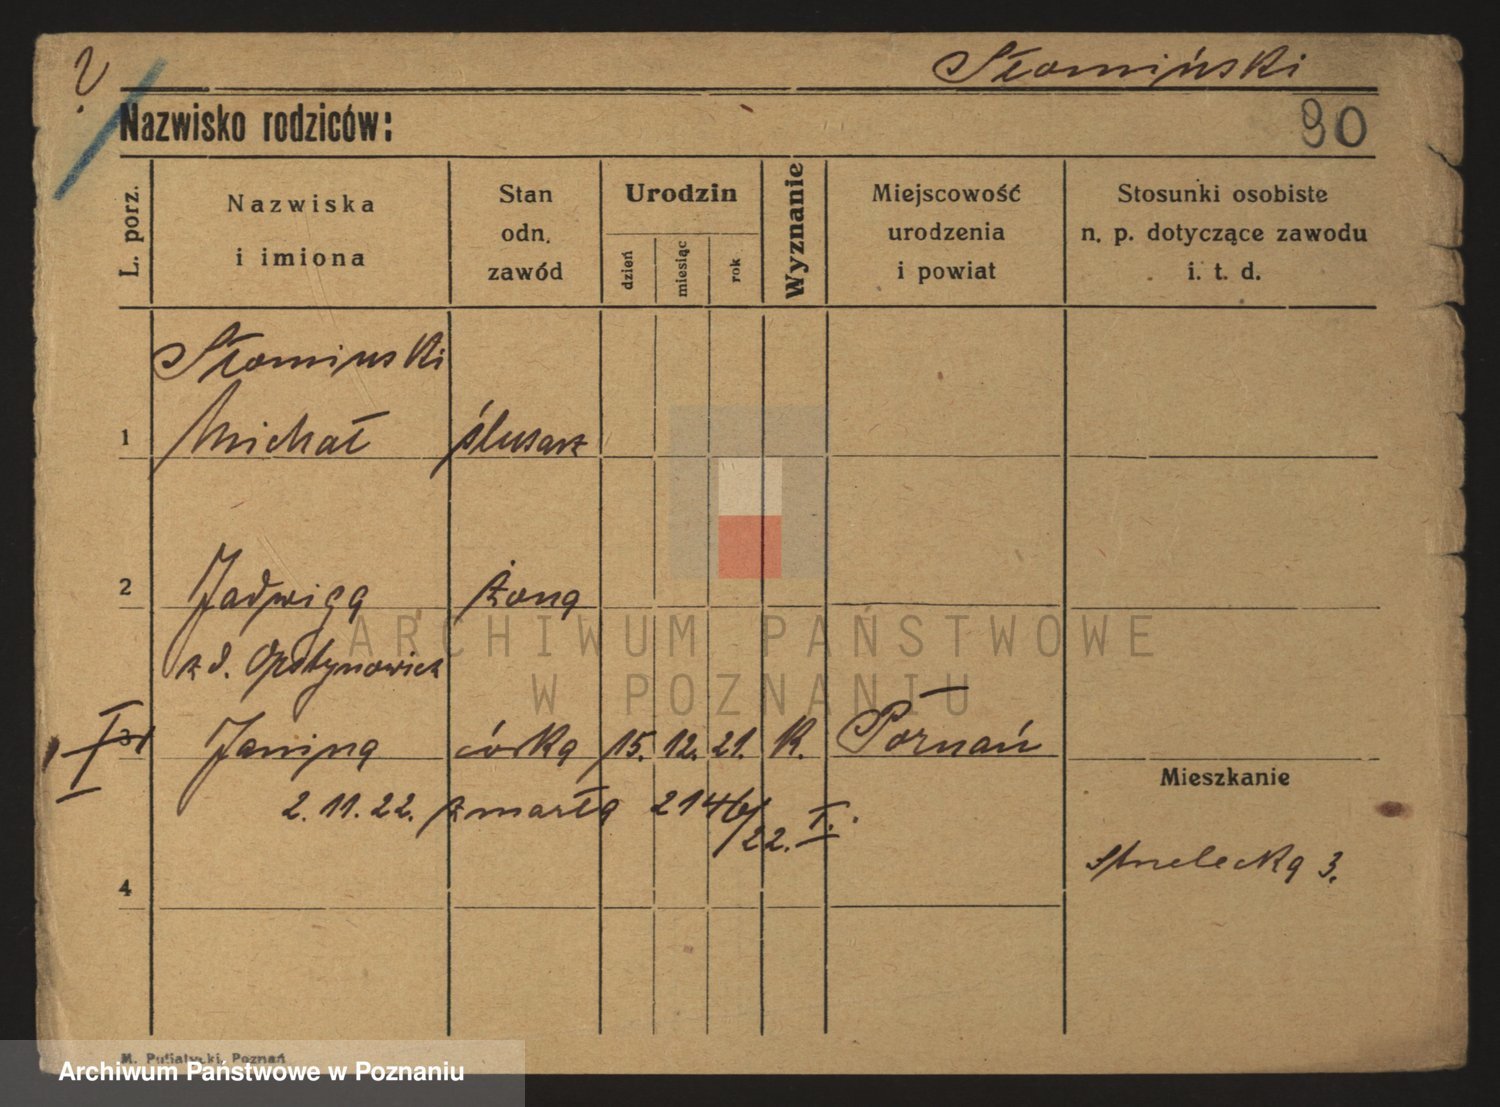 ?
Słomiński
Nazwisko rodziców:
90
L. porz.
Nazwiska
i imiona
Stan
odn.
zawód
Urodzin
dzień
miesiąc
rok
Wyznanie
Miejscowość
urodzenia
i powiat
Stosunki osobiste
n. p. dotyczące zawodu
i. t. d.
Słominski
1 Michał ślusarz
2 Jadwiga żona
z d.
Janina córka 15. 12. 21. k. Poznań
Mieszkanie
2. 11. 22. zmarła 2146/22. I.
Strzelecka 3.
4
ARCHIWUM PAŃSTWOWE
W POZNANIU
M. Putiatycki, Poznań
Archiwum Państwowe w Poznaniu